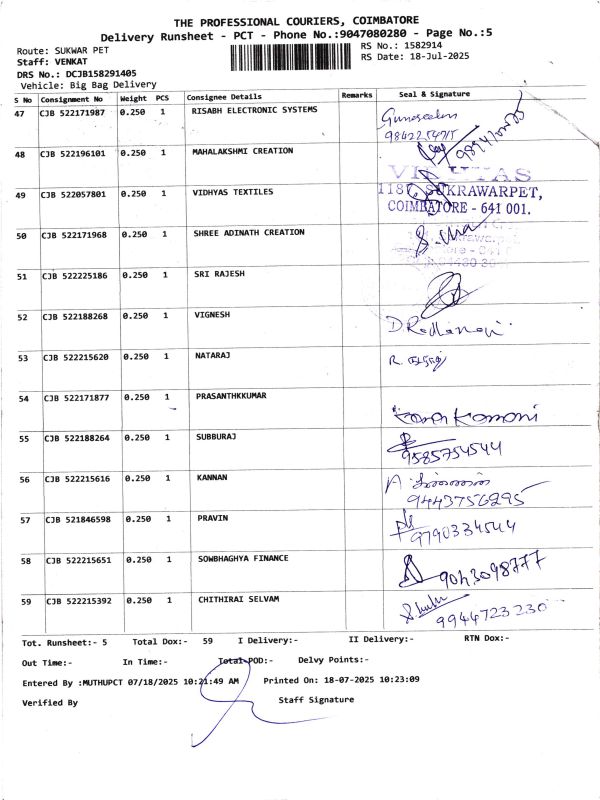 THE PROFESSIONAL COURIERS, COIMBATORE
Delivery Runsheet - PCT - Phone No.:9047080280 - Page No.:5
Route: SUKWAR PET
RS No.: 1582914
Staff: VENKAT
RS Date: 18-Jul-2025
DRS No.: DCJB158291405
Vehicle: Big Bag Delivery
S No Consignment No Weight PCS Consignee Details Remarks Seal & Signature
47 CJB 522171987 0.250 1 RISABH ELECTRONIC SYSTEMS
48 CJB 522196101 0.250 1 MAHALAKSHMI CREATION
49 CJB 522057801 0.250 1 VIDHYAS TEXTILES
SUKRAWARPET,
COIMBATORE - 641 001.
50 CJB 522171968 0.250 1 SHREE ADINATH CREATION
51 CJB 522225186 0.250 1 SRI RAJESH
52 CJB 522188268 0.250 1 VIGNESH
53 CJB 522215620 0.250 1 NATARAJ
54 CJB 522171877 0.250 1 PRASANTHKKUMAR
55 CJB 522188264 0.250 1 SUBBURAJ
9585754544
56 CJB 522215616 0.250 1 KANNAN
9443756295
57 CJB 521846598 0.250 1 PRAVIN
9790334544
58 CJB 522215651 0.250 1 SOWBHAGHYA FINANCE
59 CJB 522215392 0.250 1 CHITHIRAI SELVAM
9944723230
Tot. Runsheet:- 5 Total Dox:- 59 I Delivery:- II Delivery:- RTN Dox:-
Out Time:- In Time:- Total POD:- Delvy Points:-
Entered By :MUTHUPCT 07/18/2025 10:21:49 AM Printed On: 18-07-2025 10:23:09
Verified By Staff Signature